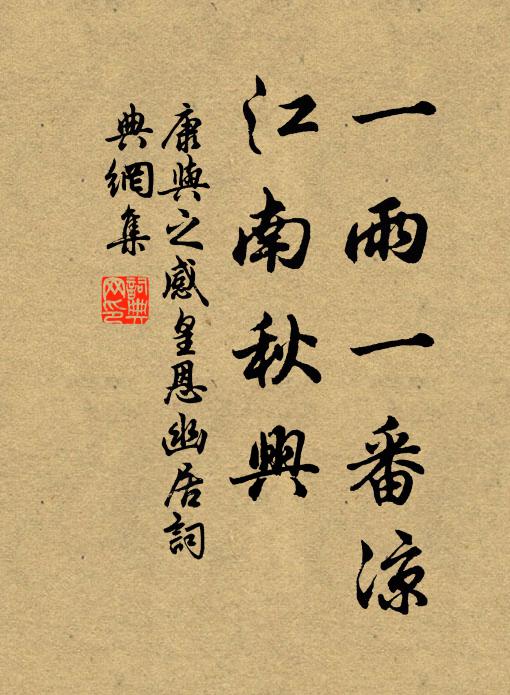 一雨一番涼
江南秋興
康與之感皇恩幽居詞
典網集
詞典
网印